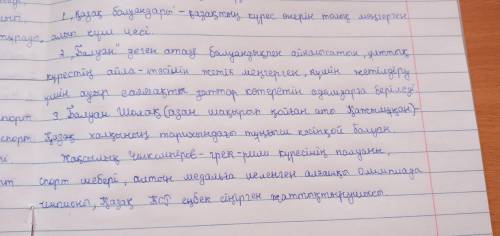 1. „Қазақ балуандары" – қазақтың күрес өнерін толық меңгерген
алып күш иесі.
2. „Балуан" деген атау балуандықпен айналысатын, ұлттық
күрестің айла-тәсілін жетік меңгерген, күшін жетілдіру
үшін ауыр салмақты заттар көтеретін адамдарға беріледі
спорт 3. Балуан Шолақ (азан шақырып қойған аты Қажымұқан) –
спорт Қазақ халқының тарихындағы тұңғыш кәсіпқой балуан.
Жақсылық Үшкемпіров – грек-рим күресінің палуаны,
спорт шебері, алтын медальға иеленген алғашқы Олимпиада
чемпионы, Қазақ КСР еңбек сіңірген жаттықтырушысы.